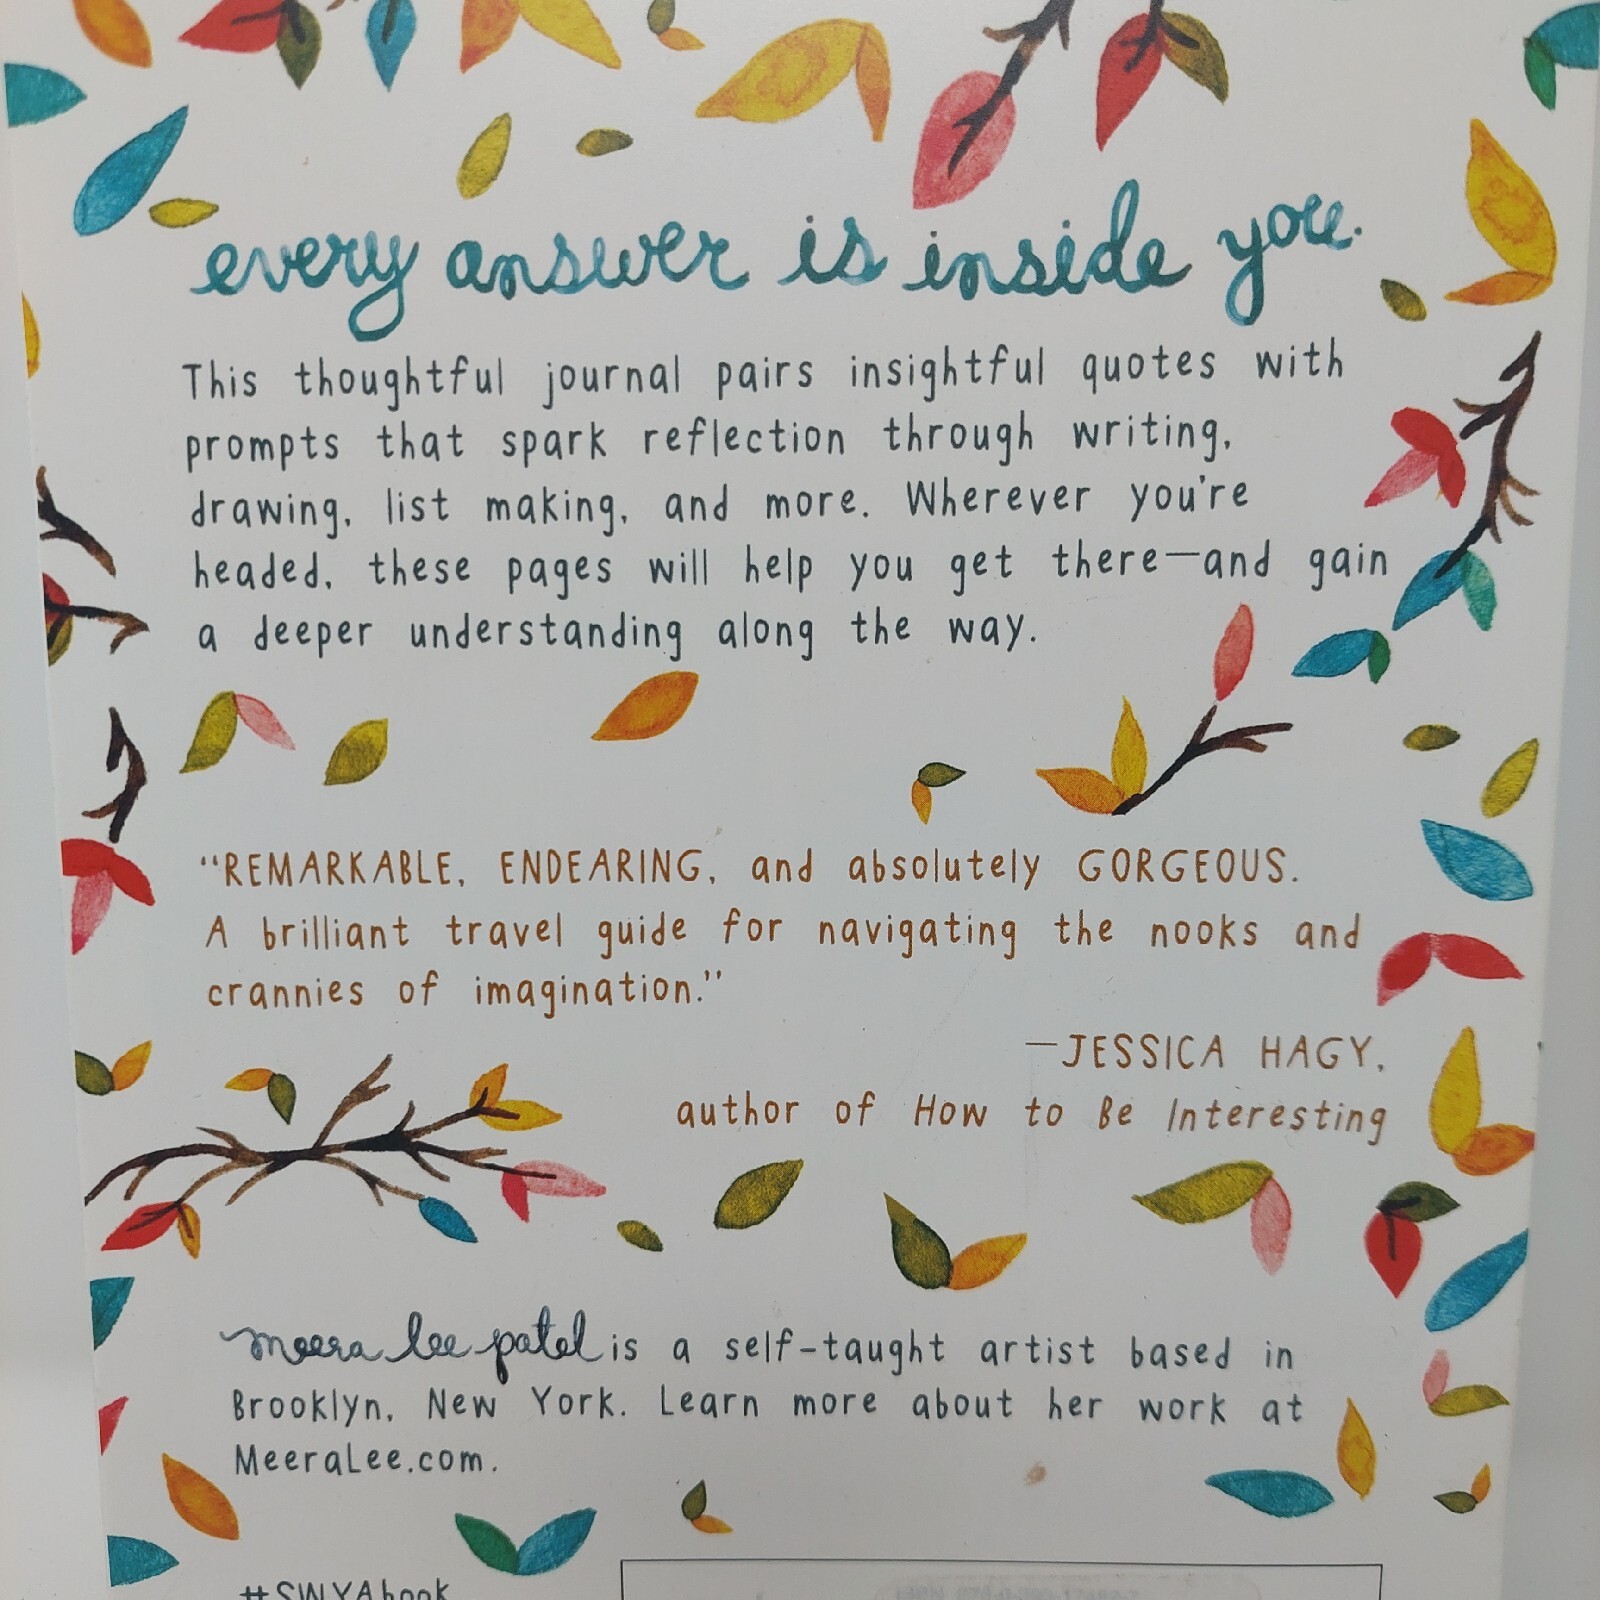 every answer is inside you.
This thoughtful journal pairs insightful quotes with
prompts that spark reflection through writing,
drawing, list making, and more. Wherever you're
headed, these pages will help you get there—and gain
a deeper understanding along the way.
“REMARKABLE, ENDEARING, and absolutely GORGEOUS.
A brilliant travel guide for navigating the nooks and
crannies of imagination.”
—JESSICA HAGY,
author of How to Be Interesting
meera lee patel is a self-taught artist based in
Brooklyn, New York. Learn more about her work at
MeeraLee.com.
#SWYAbook